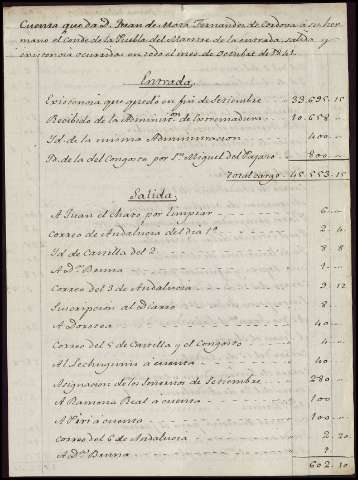 Cuenta que da D. Juan de Mata Fernandez de Cordova à su her
mano el Conde de la Puebla del Maestre de la entrada, salida y
existencia ocurridas en todo el mes de Octubre de 1841.
Entrada
Existencia que quedó en fin de Setiembre 33.695.15
Recibido de la Adminis.on de Extremadura 10.658 "
Id. de la misma Administracion 400 "
Id. de la del Congosto por Miguel del 800 "
Total cargo 45.553.15
Salida
A Juan el Chato por limpiar 6 "
Correo de Andalucia del dia 1º 2 4
Id. de Castilla del 2 8 8
A D.ª Benna
Correo del 3 de Andalucia 9 12
Suscripcion al Diario 8
A Dorotea 40
Correo del 5 de Castilla y el Congosto 4
Al Lechuguino á cuenta 40
Asignacion de los Señoritos de Setiembre 280
A Ramona Real á cuenta 100
A á cuenta 100
Correo del 6 de Andalucia 2 20
A D.ª Benna
602.10